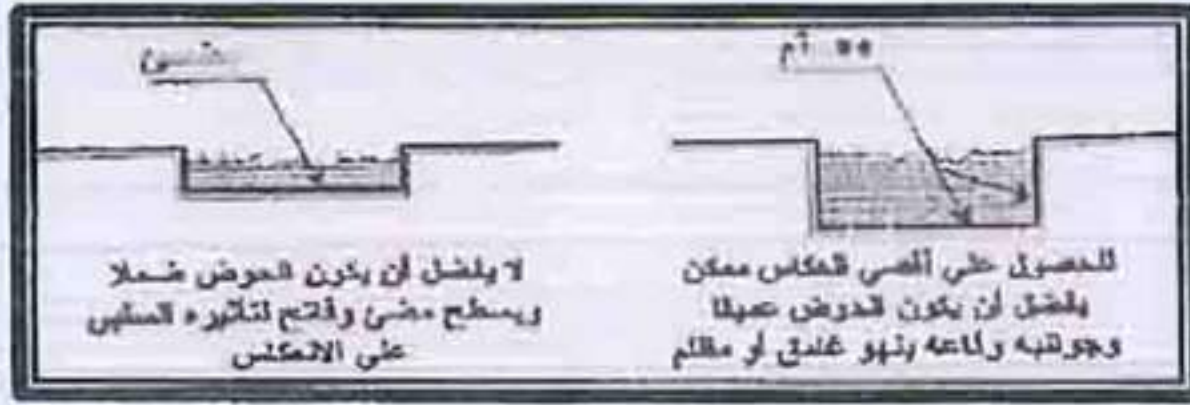 للحصول علي أقصي انعكاس ممكن
يفضل أن يكون الحوض عميقا
وجوانبه وقاعه غامق أو مظلم
لا يفضل أن يكون الحوض ضحلا
وبسطح مضئ وفاتح لتأثيره السلبي
على الانعكاس